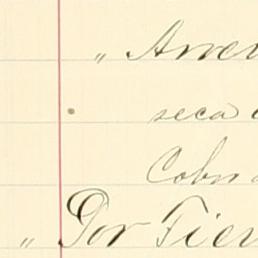 " Arren
seca
Cobr
" Por Tier